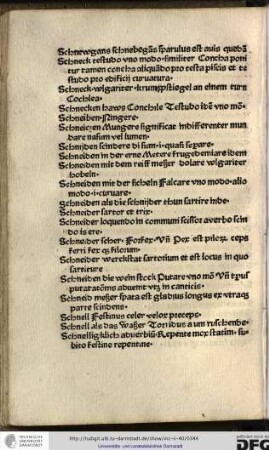 Schnewgans schnebegãs sparulus est auis quedã
Schneck testudo vno modo ·similiter Concha poni
tur tamen concha aliquãdo pro testa piscis et te
studo pro edificij curuatura·
Schneck·wlgariter·krumpstiegel an einem turn
Cochlea·
Schnecken haws Conchile Testudo idẽ vno mõ·
Schneiben·Ningere·
Schneiczen Mungere significat indifferenter mun
dare nasum vel lumen·
Schneiden scindere di sum·i·quasi separe·
Schneiden in der erne Metere fruges demere idem
Schneiden mit dem reiff meßer dolare wlgariter
hobeln·
Schneiden mit der sicheln Falcare vno modo·alio
modo·i·curuare·
schneiden als die schnijder thun sartire inde·
Schneider sartor et trix·
Schneider loquendo in communi scissor a verbo scin
do is ere·
Schneider scher· Forfex· Vñ Pex est piloꝝ· ceps
ferri fex qꝫ filorum·
Schneider werckstat sartorium et est locus in quo
sartitur
Schneiden die wein stock Putare vno mõ· Vñ tpus
putatiõis aduenit vt in canticis·
Schneid meßer spata est gladius longus ex vtraqꝫ
parte scindens·
Schnell Festinus celer velox preceps·
Schnell als das waßer Torridus a um ruschende·
Schnelliglich aduerbiũ·Repente mox statim·su
bito festine repentine·
TECHNISCHE
UNIVERSITÄT
DARMSTADT
http://tudigit.ulb.tu-darmstadt.de/show/inc-iv-401/0344
Universitäts- und Landesbibliothek Darmstadt
gefördert durch die
DFG